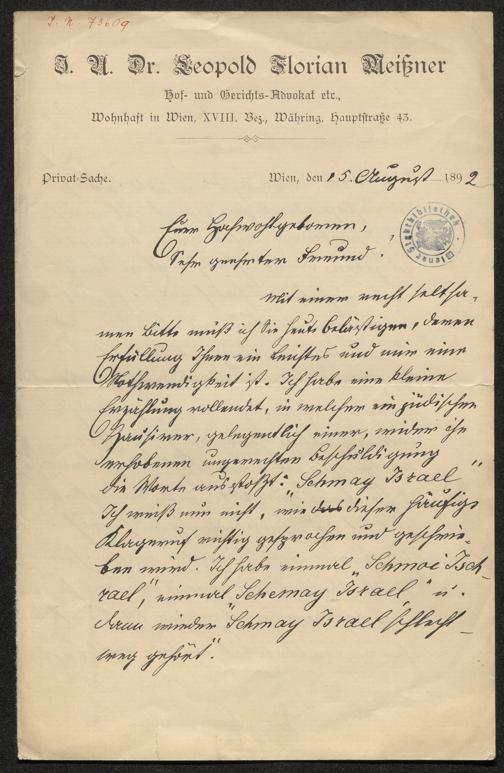 J. N. 73609
J. U. Dr. Leopold Florian Meißner
Hof- und Gerichts-Advokat etc.,
Wohnhaft in Wien, XVIII. Bez., Währing, Hauptstraße 43.
Privat-Sache.
Wien, den 15. August 1892
Euer Hochwohlgeboren,
Sehr geehrter Freund!
Wiener Stadtbibliothek
Mit einer recht seltsa-
men Bitte muß ich Sie heute belästigen, deren
Erfüllung Ihnen ein Leichtes und mir eine
Nothwendigkeit ist. Ich habe eine kleine
Erzählung vollendet, in welcher ein jüdischer
Hausirer, gelegentlich einer, wider ihn
erhobenen ungerechten Beschuldigung
die Worte ausstoßt: "Schmay Israel"
Ich weiß nun nicht, wie das dieser häufige
Klageruf richtig gesprochen und geschrie-
ben wird. Ich habe einmal "Schmoi Isch-
rael", einmal "Schemay Israel" u.
dann wieder "Schmay Israel" schlecht-
weg gehört.